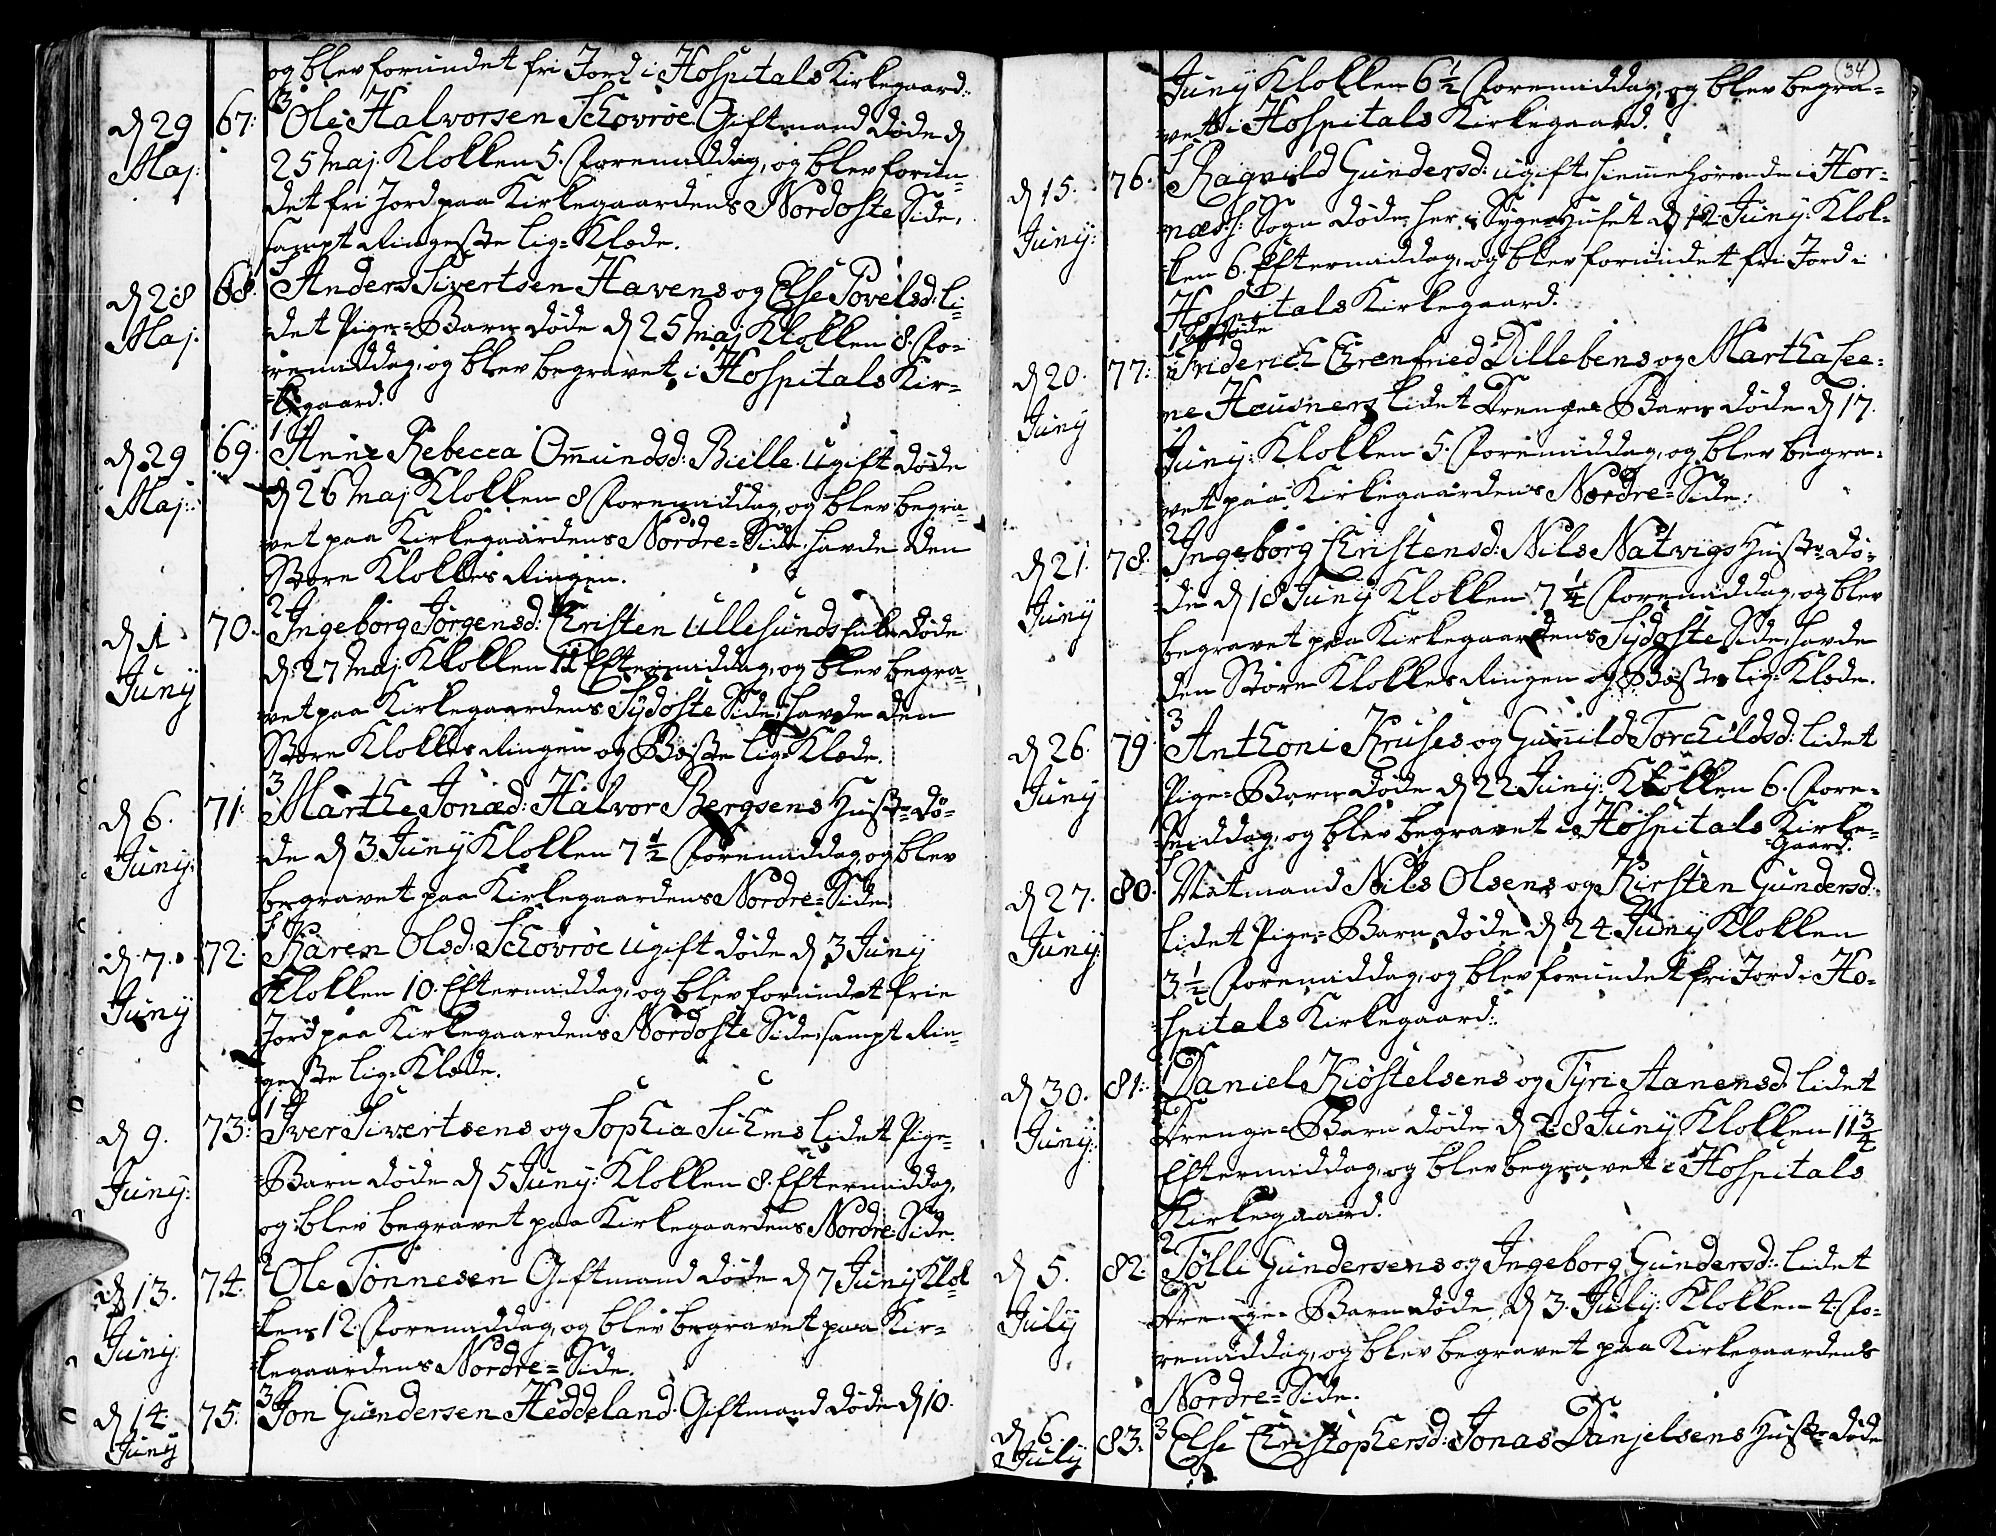 og blev forundet fri Jord i Hospitals Kirkegaard:
d 29 Maj: 67: 3 Ole Halvorsen Schovrøe Giftmand døde d
25 Maj. Klokken 5. Formiddag, og blev forun-
det fri Jord paa Kirkegaardens Nordoste Side,
sampt Ringeste Lig-Klæde.
d 28 Maj: 68. Anders Sivertsen Havens og Else Povelsd: li-
det Pige-Barn døde d 25 Maj Klokken 8. Fo-
remiddag, og blev begravet i Hospitals Kir-
kegaard.
d. 29 Maj: 69. 1 Anne Rebecca Omundsd: Bielle Ugift døde
d 26 Maj Klokken 8 Formiddag, og blev begra-
vet paa Kirkegaardens Nordre-Side, havde den
Store Klokkes Ringen.
d 1 Juny 70. 2 Ingeborg Jørgensd: Christen Ullesunds døde
d. 27 Maj. Klokken 11 Eftermiddag, og blev begra-
vet paa Kirkegaardens Sydoste Side, havde den
Store Klokkes Ringen og Beste Lig-Klæde.
d 6. Juny: 71: 3 Marthe Jonæd: Halvor Bergsens Hustr- dø-
de d 3 Juny Klokken 7 1/2 Foremiddag, og blev
begravet paa Kirkegaardens Nordre-Side
d. 7. Juny 72. Karen Olsd: Schovrøe Ugift døde d 3 Juny
Klokken 10. Eftermiddag, og blev forundet frie
Jord paa Kirkegaardens Nordoste Side, sampt Rin-
geste Lig-Klæde.
d 9. Juny: 73: 1 Iver Sivertsens og Sophia Suhms lidet Pige-
-Barn døde d 5 Juny: Klokken 8. Eftermiddag,
og blev begravet paa Kirkegaardens Nordre-Side.
d 13. Juny: 74. 2 Ole Tønnesen Giftmand døde d 7 Juny Klok-
ken 12. Foremiddag, og blev begravet paa Kir-
kegaardens Nordre-Side.
d 14. Juny 75. 3 Jon Gundersen Heddeland. Giftmand døde d 10.
34
Juny Klokken 6 1/2 Foremiddag, og blev begra-
vet i Hospitals Kirkegaard.
d 15. Juny: 76. Ragnild Gundersd: ugift hiemmehørende i Hor-
næs Sogn døde her i Syge-Huset d 12 Juny: Klok-
ken 6. Eftermiddag, og blev forundet fri Jord i
Hospitals Kirkegaard.
d 20. Juny 77: Friderich Ehrenfried Dillebens og Martha See-
ne Heusners Lidet Drenge-Barn døde d 17.
Juny: Klokken 5. Foremiddag, og blev begra-
vet paa Kirkegaardens Nordre-Side.
d 21. Juny 78. 2 Ingeborg Christensd: Nils Natvigs Hustr- dø-
de d 18 Juny Klokken 7 1/4 Foremiddag, og blev
begravet paa Kirkegaardens Sydoste Side, havde
den Store Klokkes Ringen og Beste Lig-Klæde.
d 26. Juny 79. 3 Anthoni Kruses og Gunild Torchildsd: lidet
Pige-Barn døde d 22 Juny: Klokken 6. Fore-
middag, og blev begravet i Hospitals Kirke-
gaard.
d 27. Juny: 80. Matmand Nils Olsens og Kirsten Gundersd:
lidet Pige-Barn døde d 24 Juny Klokken
3 1/2 Foremiddag, og blev forundet fri Jord i Ho-
spitals Kirkegaard.
d 30. Juny: 81: 1 Daniel Kiøstelsens og Tyri Aanensd: lidet
Drenge-Barn døde d 28 Juny Klokken 11 3/4
Eftermiddag, og blev begravet i Hospitals
Kirkegaard.
d 5. July 82. 2 Tølli Gundersens og Ingeborg Gundersd: lidet
Drenge-Barn døde d 3. July: Klokken 4. Fo-
remiddag, og blev begravet paa Kirkegaardens
Nordre-Side.
d 6. July 83. 3 Else Christophersd: Jonas Danjelsens Hustr- døde